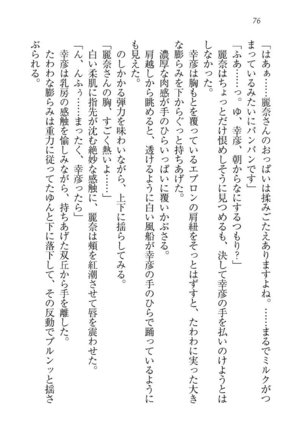 76
「はあぁ……麗奈さんのおっぱいは揉みごたえありますよね。……まるでミルクがつ
まっているみたいにパンパンです」
「ふあ……。ゆ、幸彦、朝からなにするつもり？」
麗奈はちょっとだけ恨めしそうに見つめるも、決して幸彦の手を払いのけようとは
しなかった。
幸彦は胸もとを覆っているエプロンの肩紐をそっとはずすと、たわわに実った大き
な膨らみを下からぐっと持ちあげた。
濃厚な肉感が手のひらいっぱいに覆いかぶさる。
肩越しから眺めると、透けるように白い風船が幸彦の手のひらで踊っているように
も見えた。
のしかかる弾力を味わいながら、上下に揺らしてみる。
「麗奈さんの胸、すっごく熱いよ……」
白い柔肌に指先が沈む絶妙な感触に、麗奈は頬を紅潮させて唇を震わせた。
「ん、んふぅ……まったく、幸彦ったら」
幸彦は乳房の感触を愉しみながら、持ちあげた双丘から手を離した。
たわわな膨らみは重力に従ってたゆんと下に落下して、その反動でブルンッと揺さ
ぶられる。